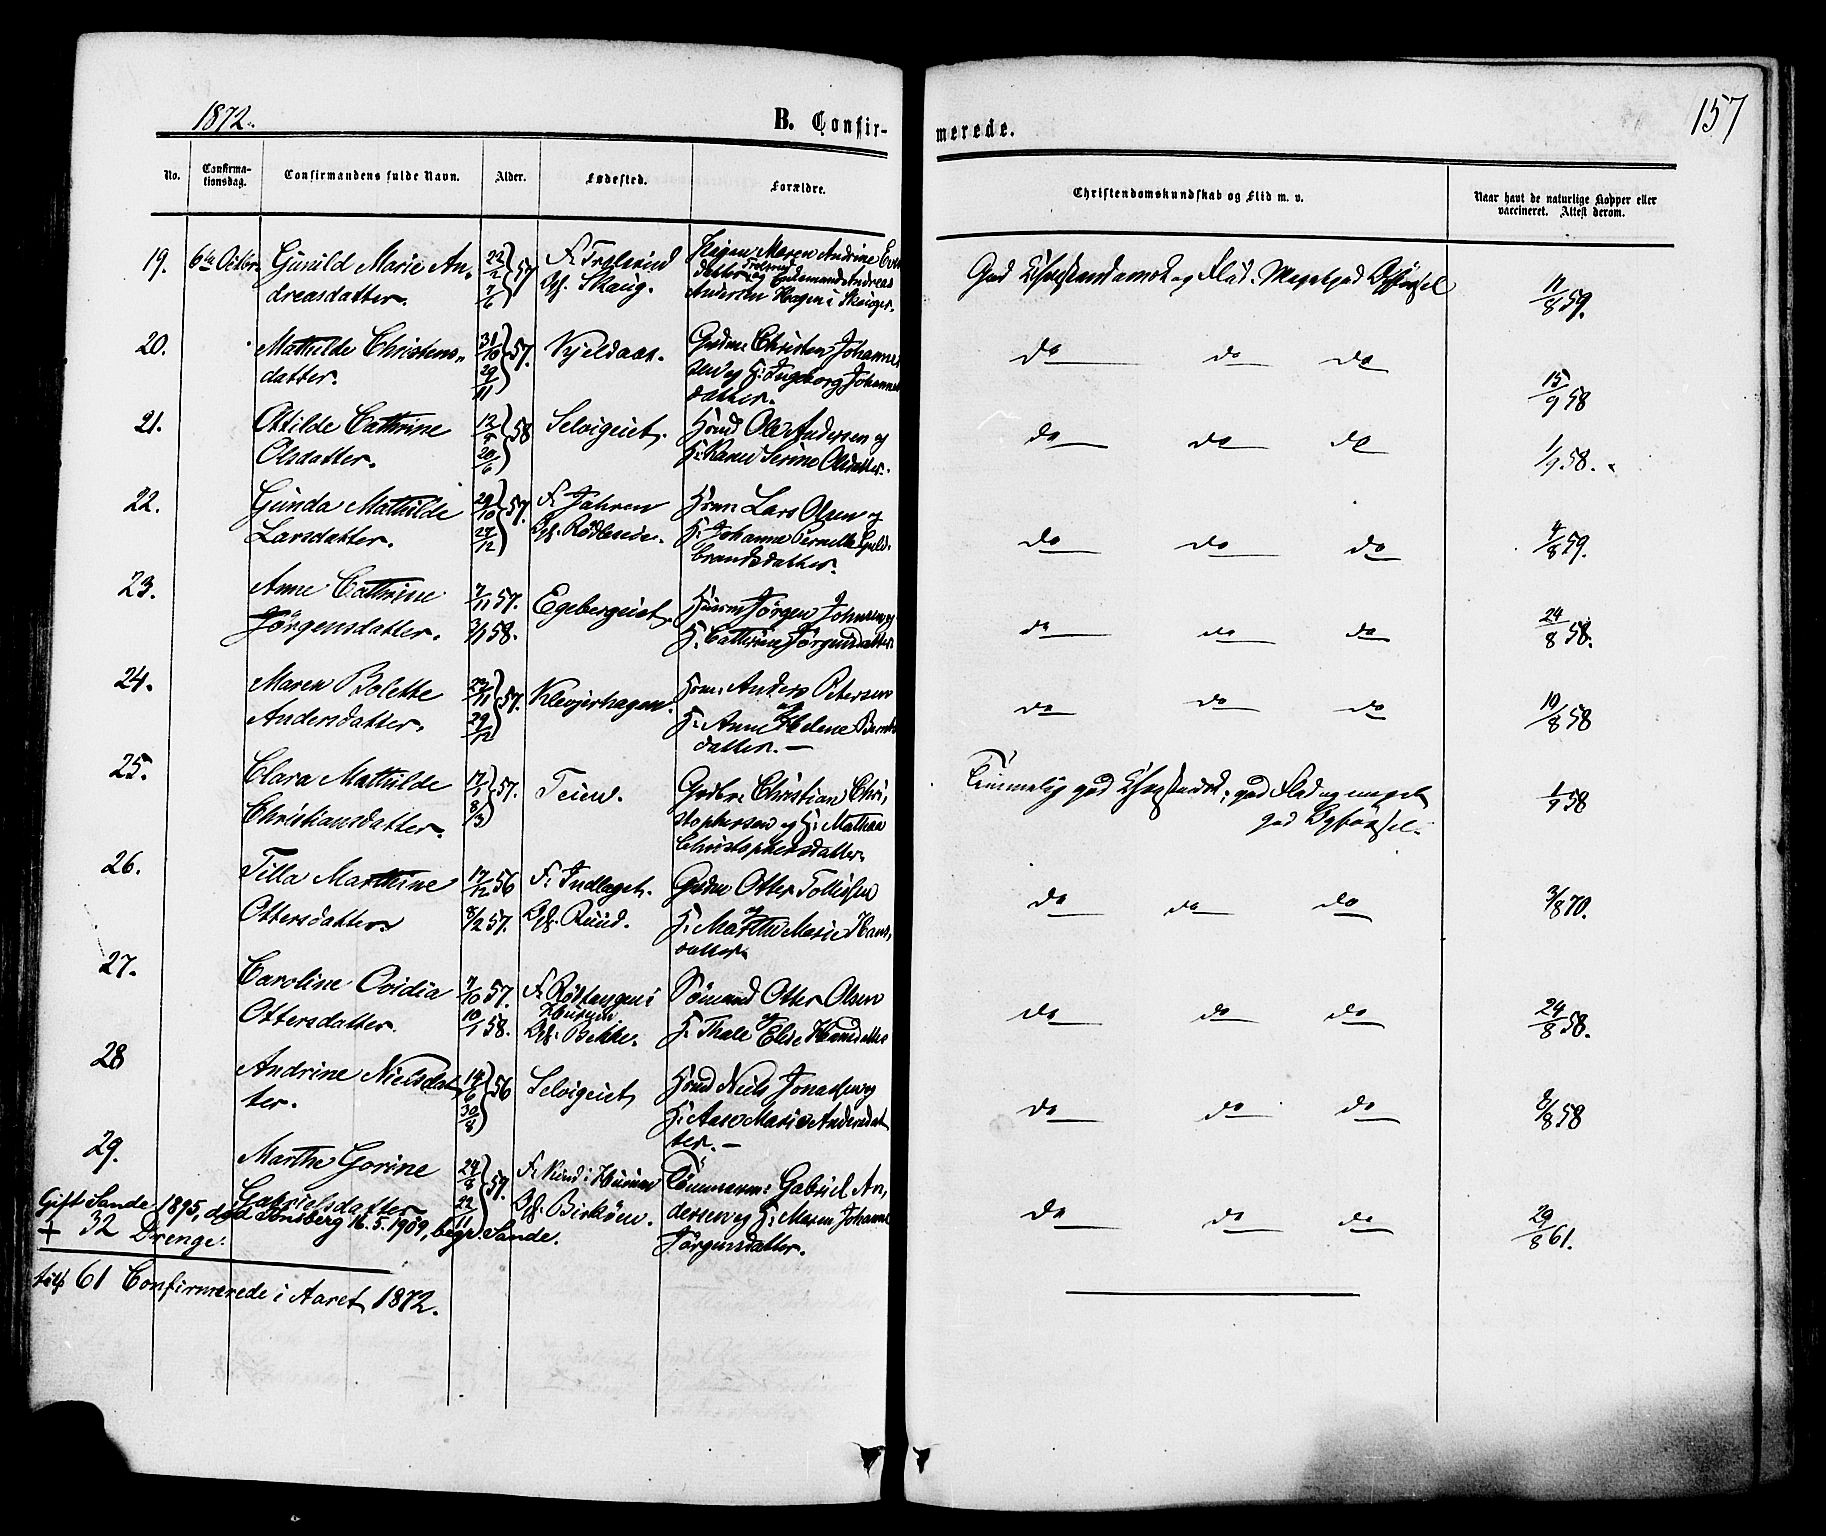 1872.
B. Confir-
merede.
157
No.
Confirma-
tionsdag.
Confirmandens fulde Navn.
Alder.
Fødested.
Forældre.
Christendomskundskab og Flid m. v.
Naar havt de naturlige Kopper eller
vaccineret. Attest derom.
19. 6te Octbr. Gunild Marie An-
dreasdatter.
22/2 7/6 57
F.
Skaug.
Maren Andrine
datter og Andreas
Andersen Hagen i Skouger.
11/8 59.
20. Mathilde Christens-
datter.
31/10 29/11 57.
Kjeldaas.
Christen Johanne-
sen og H. Ingeborg Johannes
datter.
do do do
15/9 58
21. Otilde Cathrine
Olsdatter.
12/5 20/6 58
Selvigeiet.
Ole Andersen og
H. Karen Serine Olsdatter.
do do do
1/9 58.
22. Gunda Mathilde
Larsdatter.
29/10 27/12 57.
F. Jahren
Rödleside.
Lars Olsen og
H. Johanne Pernelle Guld-
brandsdatter.
do do do
4/8 59.
23. Anne Cathrine
Jörgensdatter.
7/11 57.
3/1 58.
Egebergeiet.
Jørgen Johnsen og
H. Cathrine Jörgensdatter.
do do do
24/8 58.
24. Maren Bolette
Andersdatter.
22/11 29/12 57.
Klevjerhagen.
Anders Petersen
og
H. Anne Helene Bernts
datter. —
do do do
10/8 58
25. Clara Mathilde
Christiansdatter.
17/1 8/3 57.
Teien.
Christian Chri-
stophersen og H. Mathea
Christophersdatter.
Temmelig god god Flid og meget
god Opførsel.
1/9 58
26. Tilla Marthine
Ottersdatter.
17/12 56
8/2 57.
F. Indlaget.
Ruud.
Otter Tollefsen
og
H. Marthe Marie Hans-
datter.
do do do
3/8 70.
27. Caroline Ovidia
Ottersdatter.
7/10 57.
10/1 58.
F. Röstangen i
Hurum
Bekke.
Sömand Otter Olsen
og
H. Thale Elise Hansdatter
do do do
24/8 58.
28 Andrine Nielsdat-
ter.
14/6 30/8 56
Selvigeiet
Niels Jonassen og
H. Anne Marie Andersdat
ter. —
do do do
8/8 58
29. Marthe Gorine
Gabrielsdatter
24/8 22/11 59.
F. i Hurum
Birköen.
Tömmerm. Gabriel An-
dersen og H. Maren Johanne
Jörgensdatter.
do do do
29/8 61.
Gift i Sande 1895, död Tönsberg 16.5.1909, begr. Sande.
+ 32 Drenge.
tils. 61 Confirmerede i Aaret 1872.